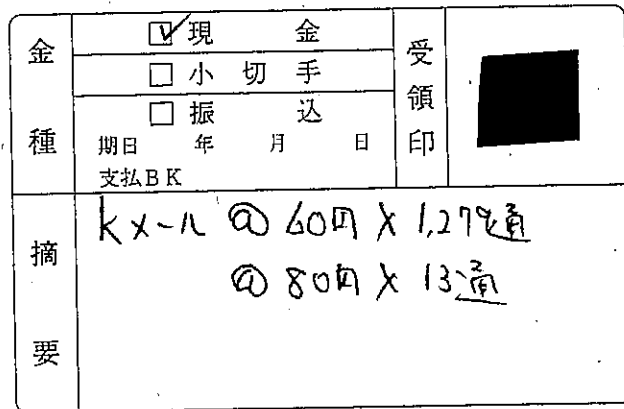 金種
☑現金
□小切手
□振込
期日 年 月 日
支払BK
受領印
摘要
Kメール @60円×1,279通
@80円×13通